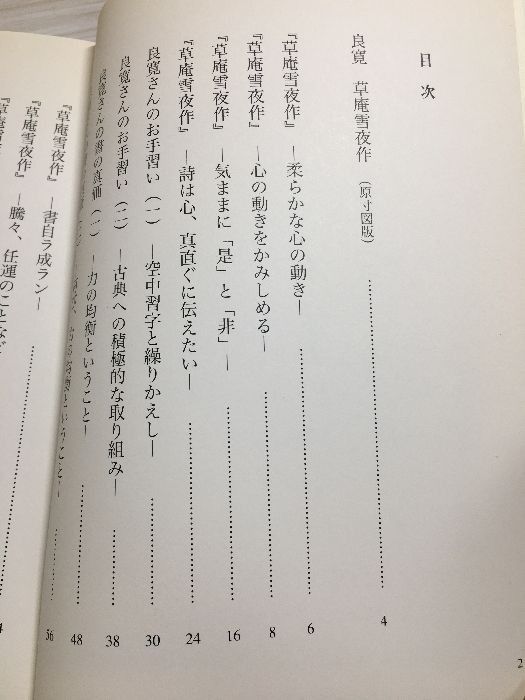 目次
良寛 草庵雪夜作（原寸図版）……4
『草庵雪夜作』―柔らかな心の動き―……6
『草庵雪夜作』―心の動きをかみしめる―……8
『草庵雪夜作』―気ままに「是」と「非」―……16
『草庵雪夜作』―詩は心、真直ぐに伝えたい―……24
良寛さんのお手習い（一）―空中習字と繰りかえし―……30
良寛さんのお手習い（二）―古典への積極的な取り組み―……38
良寛さんの書の真価（一）―力の均衡ということ―……48
ということ―……56
『草庵雪夜作』―書自ラ成ラン―
『草庵雪夜作』―騰々、任運のことなど
2